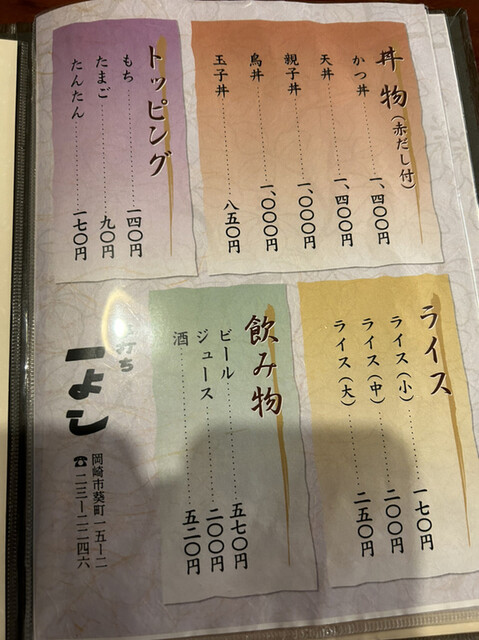 丼物(赤だし付)
かつ丼……一、四〇〇円
天丼……一、四〇〇円
親子丼……一、〇〇〇円
鳥丼……一、〇〇〇円
玉子丼……八五〇円
トッピング
もち……一四〇円
たまご……九〇円
たんたん……一七〇円
ライス
ライス(小)……一七〇円
ライス(中)……二〇〇円
ライス(大)……二五〇円
飲み物
ビール……五七〇円
ジュース……二〇〇円
酒……五二〇円
打ち
一よし
岡崎市葵町一五ー二
☎二三ー二二四六